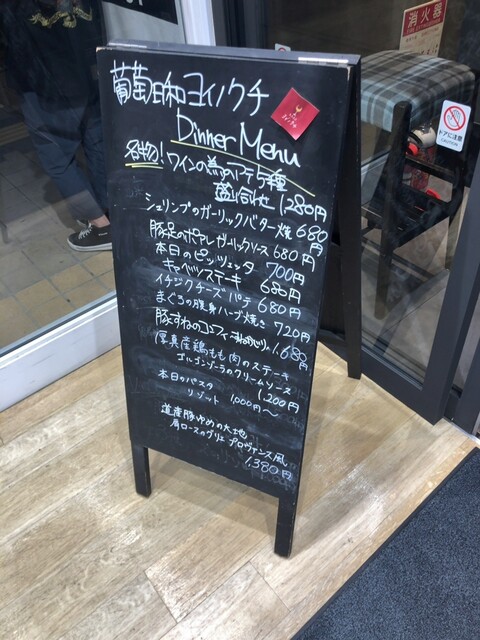 葡萄日和ヨイノクチ
Dinner Menu
名物!ワインの為のアテ5種
盛り合わせ 1,280円
シュリンプのガーリックバター焼 680円
豚足のポワレ ガーリックソース 680円
本日のピッツェッタ 700円
キャベツステーキ 680円
イチジクチーズパテ 680円
まぐろの腹身ハーブ焼き 720円
豚すねのコンフィ 1,680円
厚真産鶏もも肉のステーキ
ゴルゴンゾーラのクリームソース
1,200円
本日のパスタ
リゾット 1,000円〜
道産豚ゆめの大地
肩ロースのグリエ プロヴァンス風
1,380円
消火器
ドアに注意
CAUTION